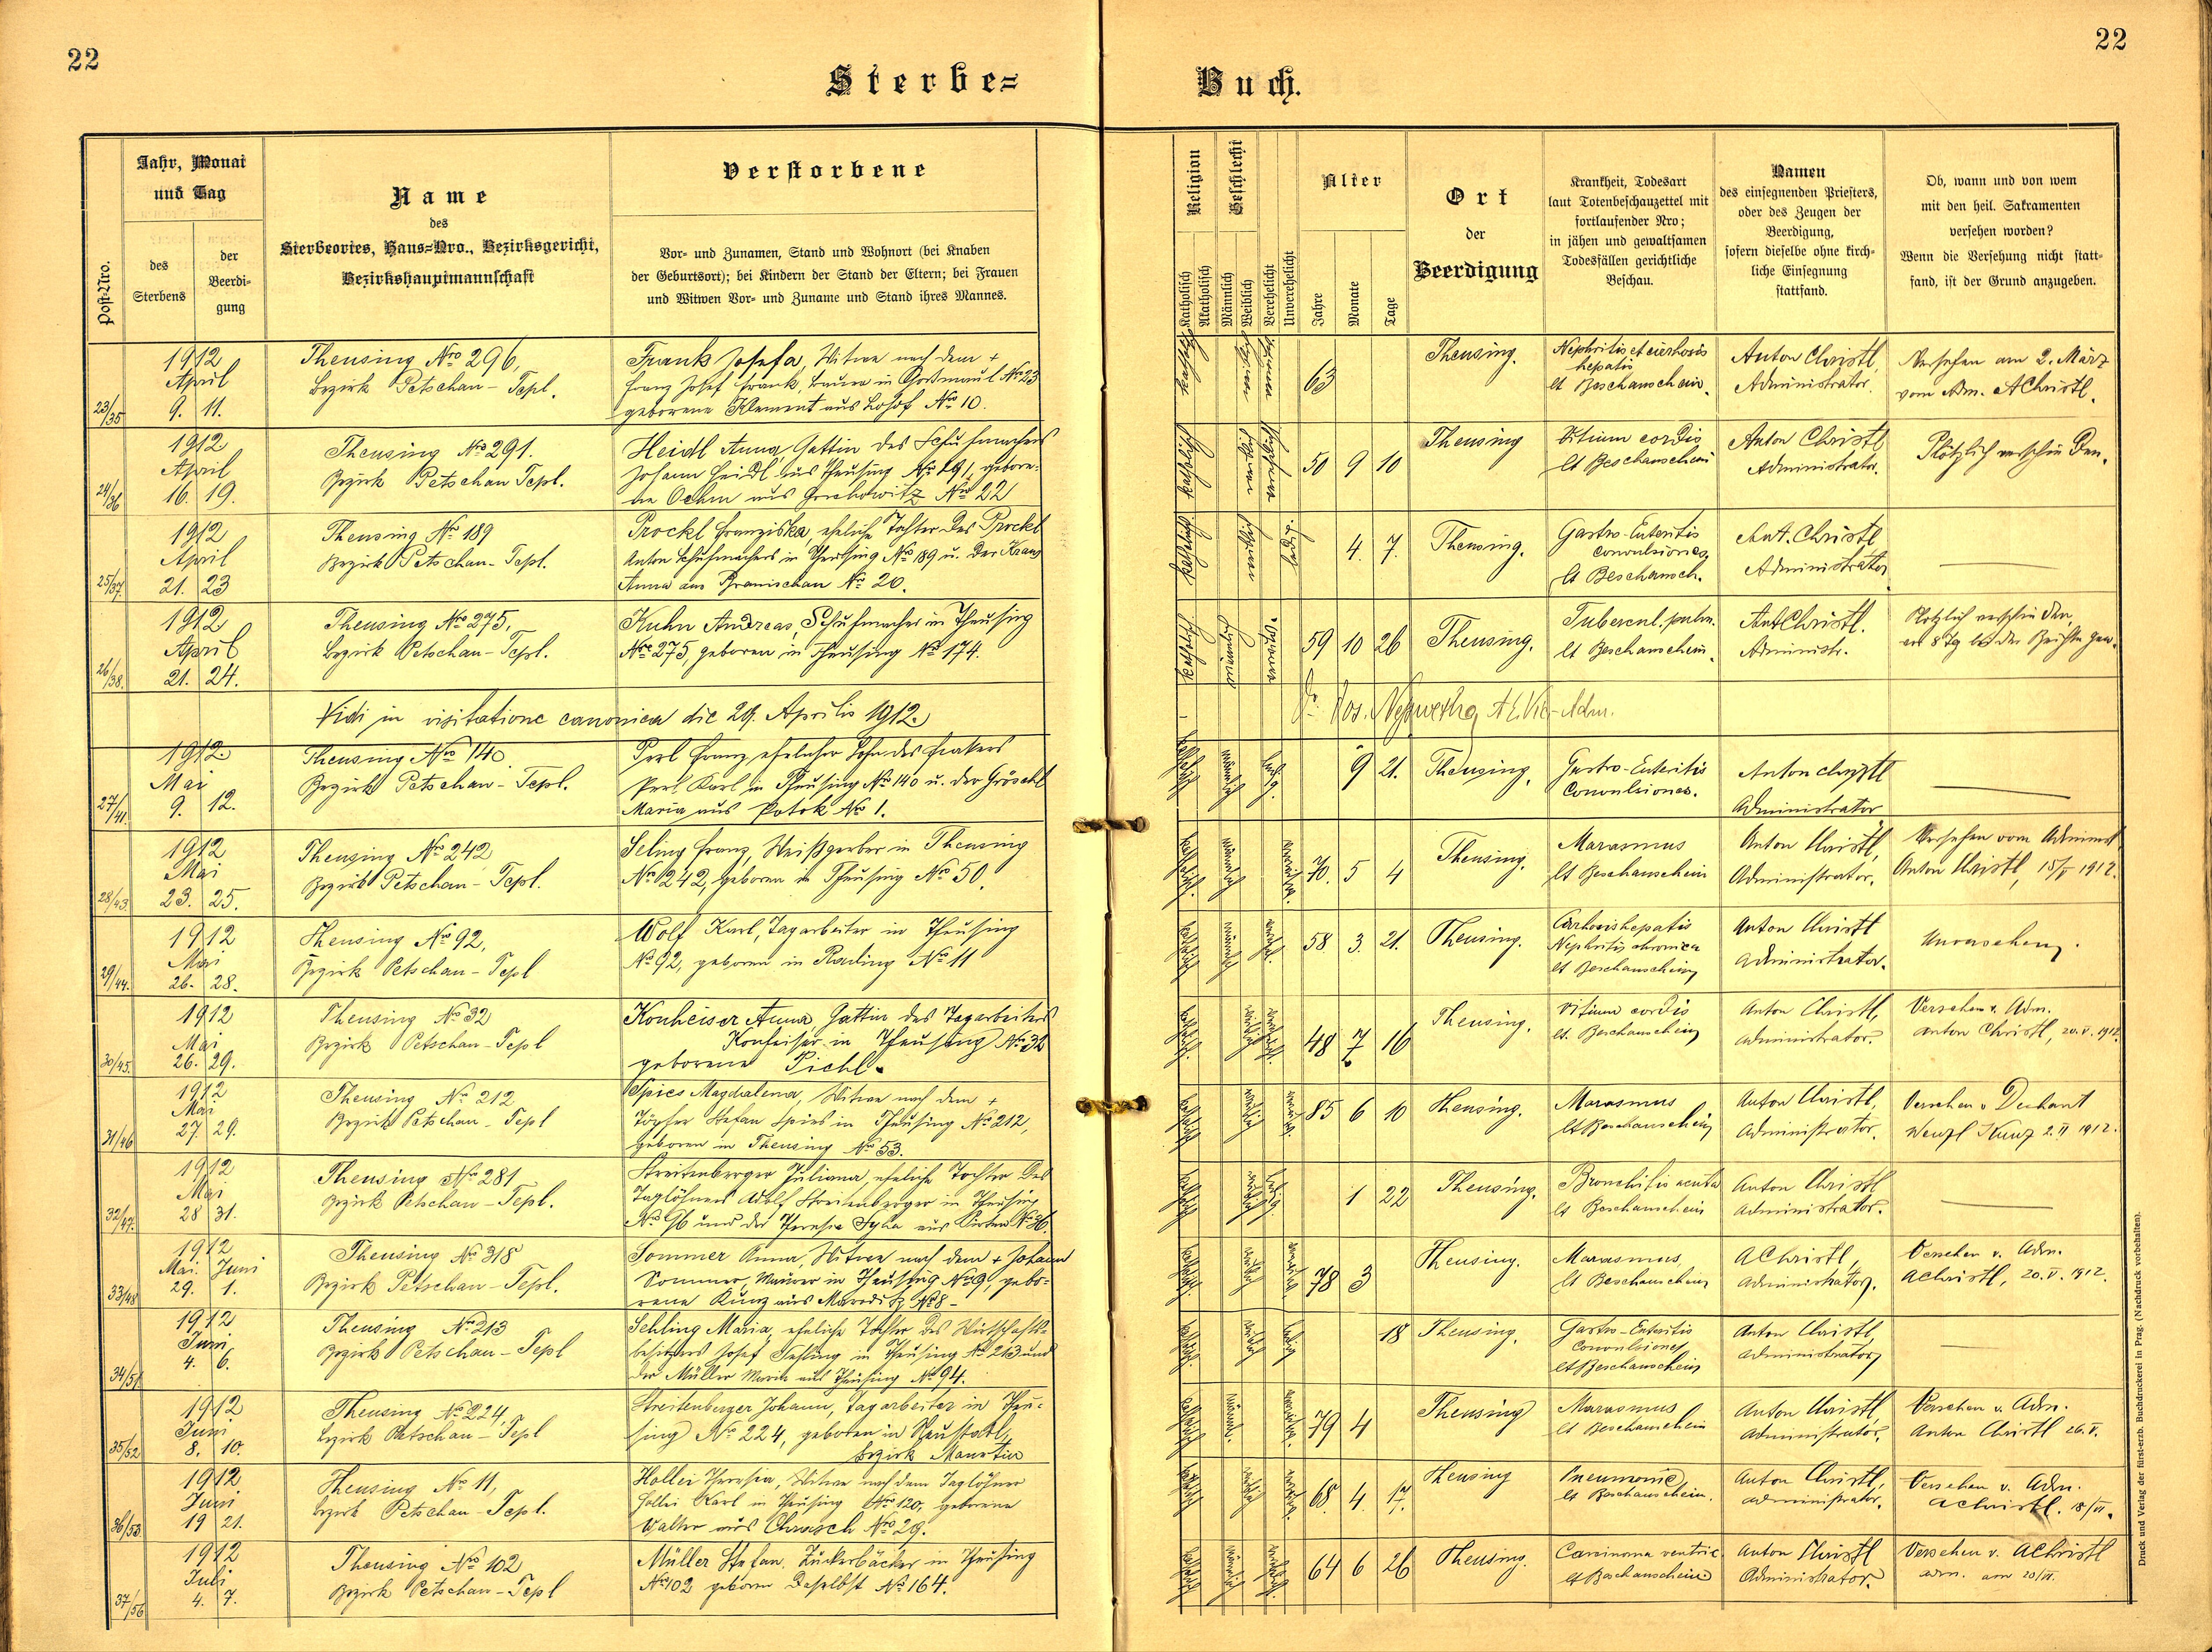 22
22
Sterbe=
Buch.
Post-Nro.
Jahr, Monat
und Tag
des
Sterbens
der
Beerdi-
gung
Name
des
Sterbeortes, Haus=Nro., Bezirksgericht,
Bezirkshauptmannschaft
Verstorbene
Vor- und Zunamen, Stand und Wohnort (bei Knaben
der Geburtsort); bei Kindern der Stand der Eltern; bei Frauen
und Witwen Vor- und Zuname und Stand ihres Mannes.
Religion
Katholisch
Akatholisch
Geschlecht
Männlich
Weiblich
Verehelicht
Unverehelicht
Alter
Jahre
Monate
Tage
Ort
der
Beerdigung
Krankheit, Todesart
laut Totenbeschauzettel mit
fortlaufender Nro;
in jähen und gewaltsamen
Todesfällen gerichtliche
Beschau.
Namen
des einsegnenden Priesters,
oder des Zeugen der
Beerdigung,
sofern dieselbe ohne kirch-
liche Einsegnung
stattfand.
Ob, wann und von wem
mit den heil. Sakramenten
versehen worden?
Wenn die Versehung nicht statt-
fand, ist der Grund anzugeben.
23/35
1912
April
9. 11.
Theusing Nro 296,
Bezirk Petschau-Tepl.
Frank Josefa, Witwe nach dem +
Franz Josef Frank, in No 23
geborene Klement aus No 10.
katholisch
63
Theusing.
Nephritis et cirrhosis
hepatis
lt Beschauschein.
Anton Christl,
Administrator.
Versehen am 2. März
vom Adm. AChristl.
24/36
1912
April
16. 19.
Theusing No 291.
Bezirk Petschau Tepl.
Heidl Anna, Gattin des Schuhmachers
Johann Heidl aus Theusing No 291, gebore-
ne Oehm aus No 22
katholisch
50 9 10
Theusing
Vitium cordis
lt Beschauschein
Anton Christl
Administrator.
Plötzlich verschieden.
25/37.
1912
April
21. 23
Theusing No 189
Bezirk Petschau-Tepl.
Prockl Franziska, eheliche Tochter des Prockl
Anton Schuhmachers in Theusing No 189 u. der Kraus
Anna aus Branischau No 20.
katholisch
ledig.
4. 7.
Theusing.
Gastro-Enteritis
Convulsiones,
lt Beschausch.
Ant. Christl
Administrator
26/38.
1912
April
21. 24.
Theusing No 275.
Bezirk Petschau-Tepl.
Kuhn Andreas, Schuhmacher in Theusing
No 275, geboren in Theusing No 174.
katholisch
59 10 26
Theusing.
Tubercul. pulm.
lt Beschauschein.
AntChristl.
Administr.
Plötzlich verschieden,
Vidi in visitatione canonica die 29. Aprilis 1912.
27/41.
1912.
Mai
9. 12.
Theusing No 140.
Bezirk Petschau-Tepl.
Perl Franz, ehelicher Sohn des
Perl Karl in Theusing No 140 u. der Gröschl
Maria aus Potok No 1.
9 21.
Theusing.
Gastro-Enteritis
Convulsiones.
Anton Christl
Administrator
28/43.
1912
Mai
23. 25.
Theusing No 242
Bezirk Petschau-Tepl.
Seling Franz, Weißgerber in Theusing
No 242, geboren in Theusing No 50.
70. 5 4
Theusing.
Marasmus
lt Beschauschein
Anton Christl,
Administrator.
Versehen vom Administ.
Anton Christl, 15/V 1912.
29/44.
1912
Mai
26. 28.
Theusing No 92,
Bezirk Petschau-Tepl
Wolf Karl, Tagarbeiter in Theusing
No 92, geboren in Rading No 11
58. 3. 21.
Theusing.
Cirrhosis hepatis
Nephritis chronica
lt Beschauschein
Anton Christl
Administrator.
Unversehen.
30/45.
1912
Mai
26. 29.
Theusing No 32
Bezirk Petschau-Tepl
Konheiser Anna, Gattin des Tagarbeiters
Konheiser in Theusing No 32
geborene Pichl.
48 7 16
Theusing.
Vitium cordis
lt. Beschauschein
Anton Christl,
Administrator.
Versehen v. Adm.
Anton Christl, 20.V. 1912.
31/46
1912
Mai
27. 29.
Theusing No 212
Bezirk Petschau-Tepl
Spies Magdalena, Witwe nach dem +
Töpfer Stefan Spies in Theusing No 212,
geboren in Theusing No 53.
85 6 10
Theusing.
Marasmus
lt Beschauschein
Anton Christl,
Administrator.
Versehen v Dechant
Wenzl Kunz 2.II 1912.
32/47.
1912
Mai
28 31.
Theusing No 281
Bezirk Petschau-Tepl.
Streitenberger Juliana, eheliche Tochter des
Taglöhners Adolf Streitenberger in Theusing
No 96 und der Theresia aus No 36.
ledig.
1 22
Theusing.
Bronchitis acuta
lt Beschauschein
Anton Christl
Administrator.
33/48
1912
Mai. Juni
29. 1.
Theusing No 318
Bezirk Petschau-Tepl.
Sommer Anna, Witwe nach dem + Johann
Sommer, Maurer in Theusing No 9, gebo=
rene Kunz aus No 8-
78 3
Theusing.
Marasmus
lt Beschauschein
AChristl,
Administrator.
Versehen v. Adm.
AChristl, 20.V. 1912.
34/51
1912
Juni
4. 6.
Theusing No 213
Bezirk Petschau-Tepl
Sehling Maria, eheliche Tochter des Wirtschafts-
besitzers Josef Sehling in Theusing No 213 und
der Müller Maria aus Theusing No 94.
ledig
18
Theusing.
Gastro-Enteritis
Convulsiones
lt Beschauschein
Anton Christl,
Administrator
35/52
1912
Juni
8. 10.
Theusing No 224,
Bezirk Petschau-Tepl
Streitenberger Johann, Tagarbeiter in Theu-
sing No 224, geboren in Neustadtl,
Bezirk Manetin
79 4
Theusing
Marasmus
lt Beschauschein
Anton Christl
Administrator.
Versehen v. Adm.
Anton Christl 26.V.
36/53
1912
Juni
19 21.
Theusing No 11,
Bezirk Petschau-Tepl.
Hollei Theresia, Witwe nach dem Taglöhner
Hollei Karl in Theusing No 120, geborene
Walter aus Chrasch No 29.
68. 4. 17.
Theusing
Pneumonie,
lt Beschauschein.
Anton Christl,
Administrator.
Versehen v. Adm.
AChristl. 18/VI.
37/56
1912
Juli
4. 7.
Theusing No 102
Bezirk Petschau-Tepl
Müller Stefan, Zuckerbäcker in Theusing
No 102 geboren daselbst No 164.
64 6 26
Theusing.
Carcinoma ventric.
lt Beschauschein
Anton Christl
Administrator.
Versehen v. AChristl
adm. am 20/VI.
Druck und Verlag der fürst-erzb. Buchdruckerei in Prag. (Nachdruck vorbehalten).